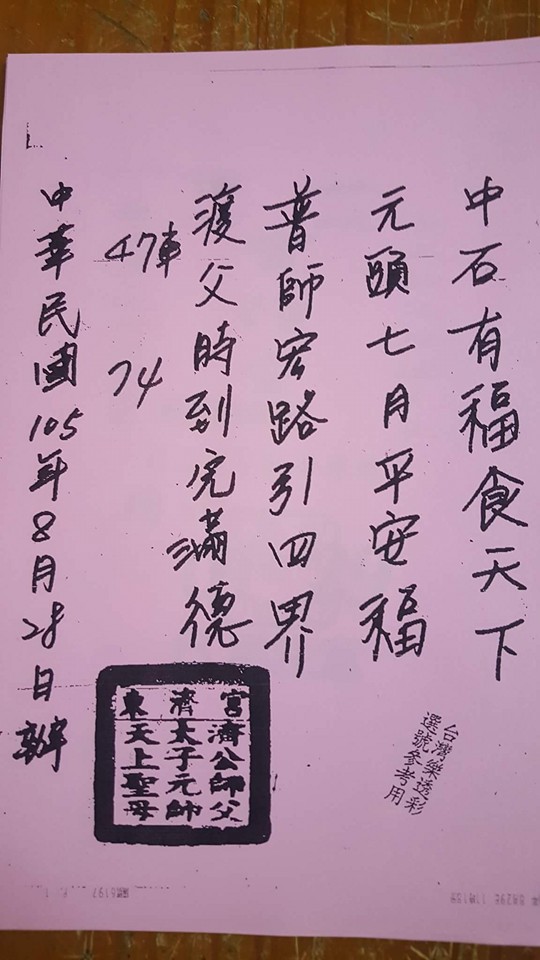 中石有福食天下
元頭七月平安福
普師宏路引四界
渡父時到完滿德
47車 74
中華民國105年8月28日辦
東濟宮
濟公師父
太子元帥
天上聖母
台灣樂透彩
選號參考用